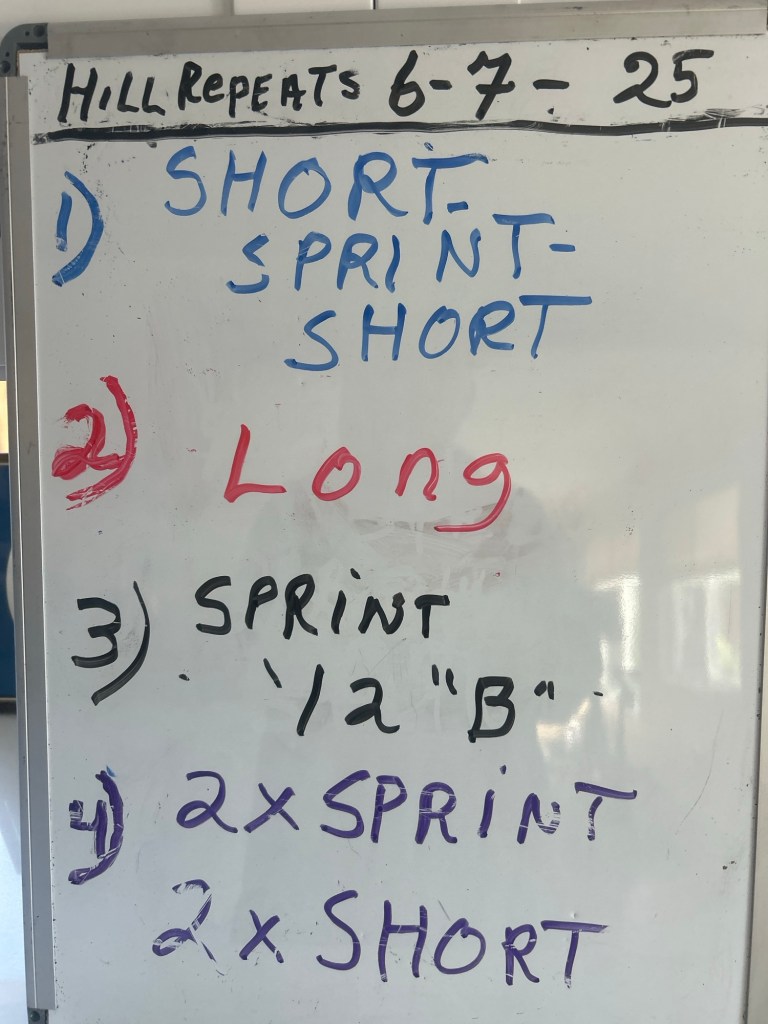 HILL REPEATS 6-7-25
1) SHORT-
SPRINT-
SHORT
2) Long
3) SPRINT
1/2 "B"
4) 2x SPRINT
2x SHORT